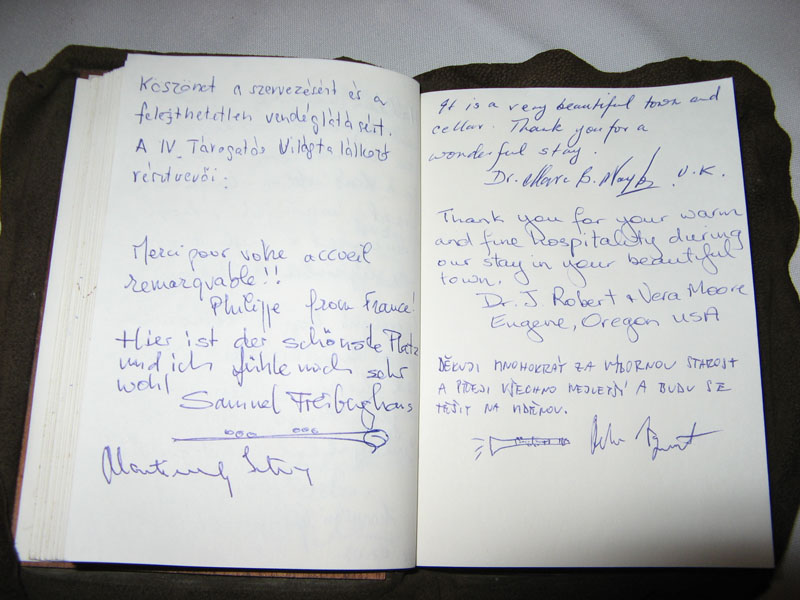 Köszönet a szervezésért és a
felejthetetlen vendéglátásért.
A IV. Tárogatós Világtalálkozó
résztvevői:
Merci pour votre accueil
remarquable!!
Philippe from France!
Hier ist der schönste Platz
und ich fühle mich sehr
wohl
Samuel Freiburghaus
It is a very beautiful town and
cellar. Thank you for a
wonderful stay.
Dr. B. U.K.
Thank you for your warm
and fine hospitality during
our stay in your beautiful
town.
Dr. J. Robert & Vera Moore
Eugene, Oregon USA
DĚKUJI MNOHOKRÁT ZA VÝBORNOU STAROST
A PŘEJI VŠECHNO NEJLEPŠÍ A BUDU SE
TĚŠIT NA